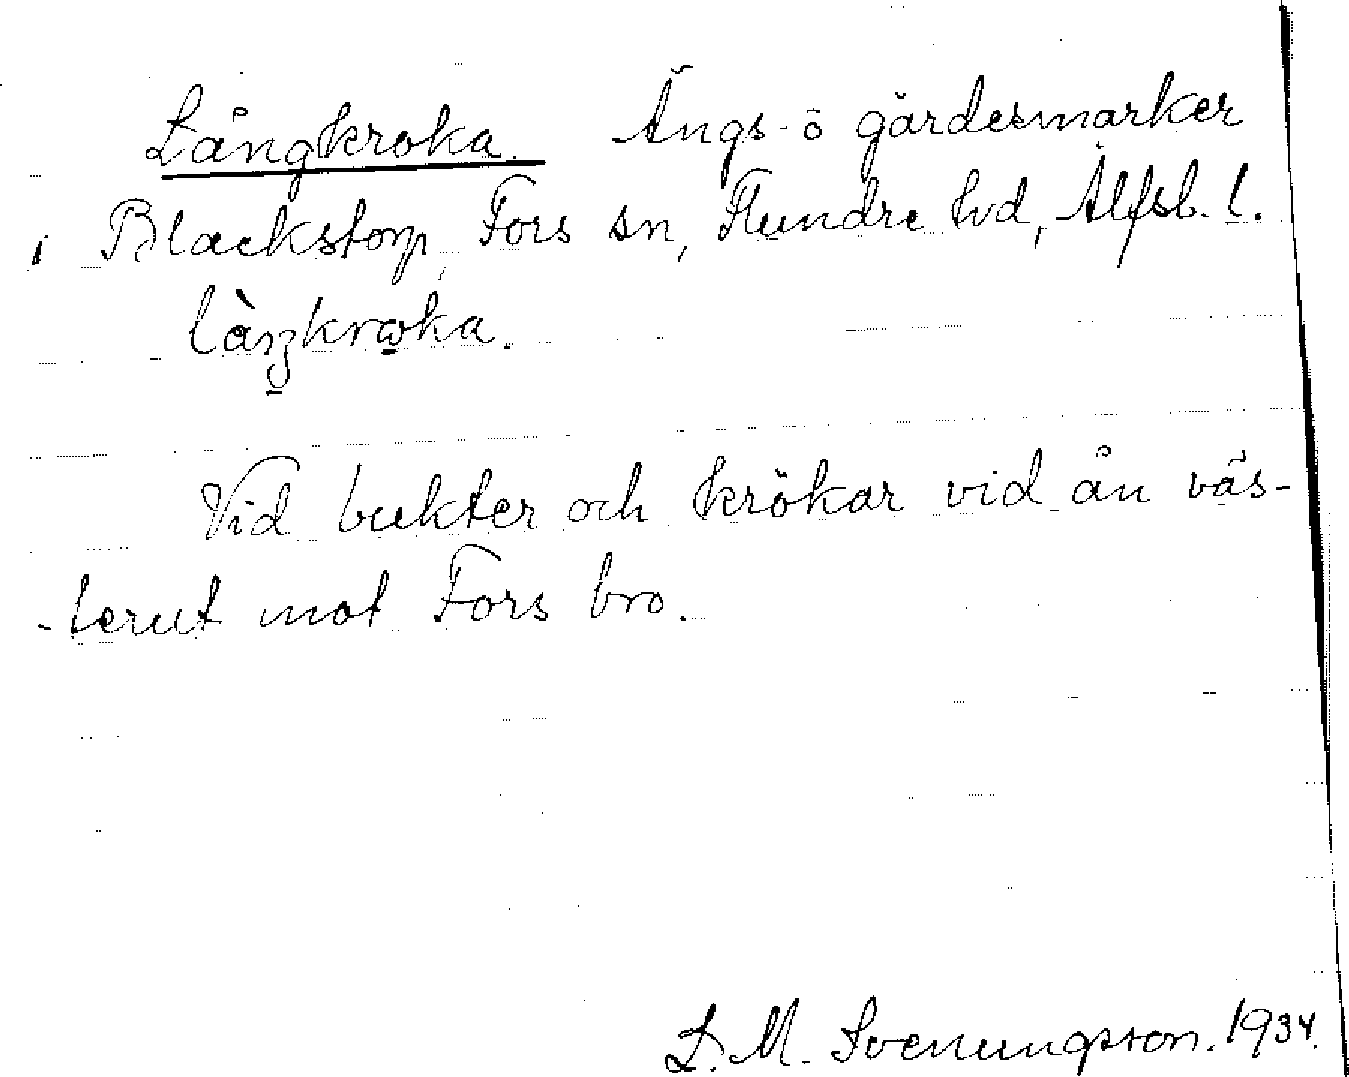 Långkroka. Ängs- o gärdesmarker
i Blackstorp, Fors sn, Flundre hd, Älfsb. l.
làŋkrɷka.
Vid bukter och krökar vid ån väs-
-terut mot Fors bro.
L. M. Svenungsson. 1934.